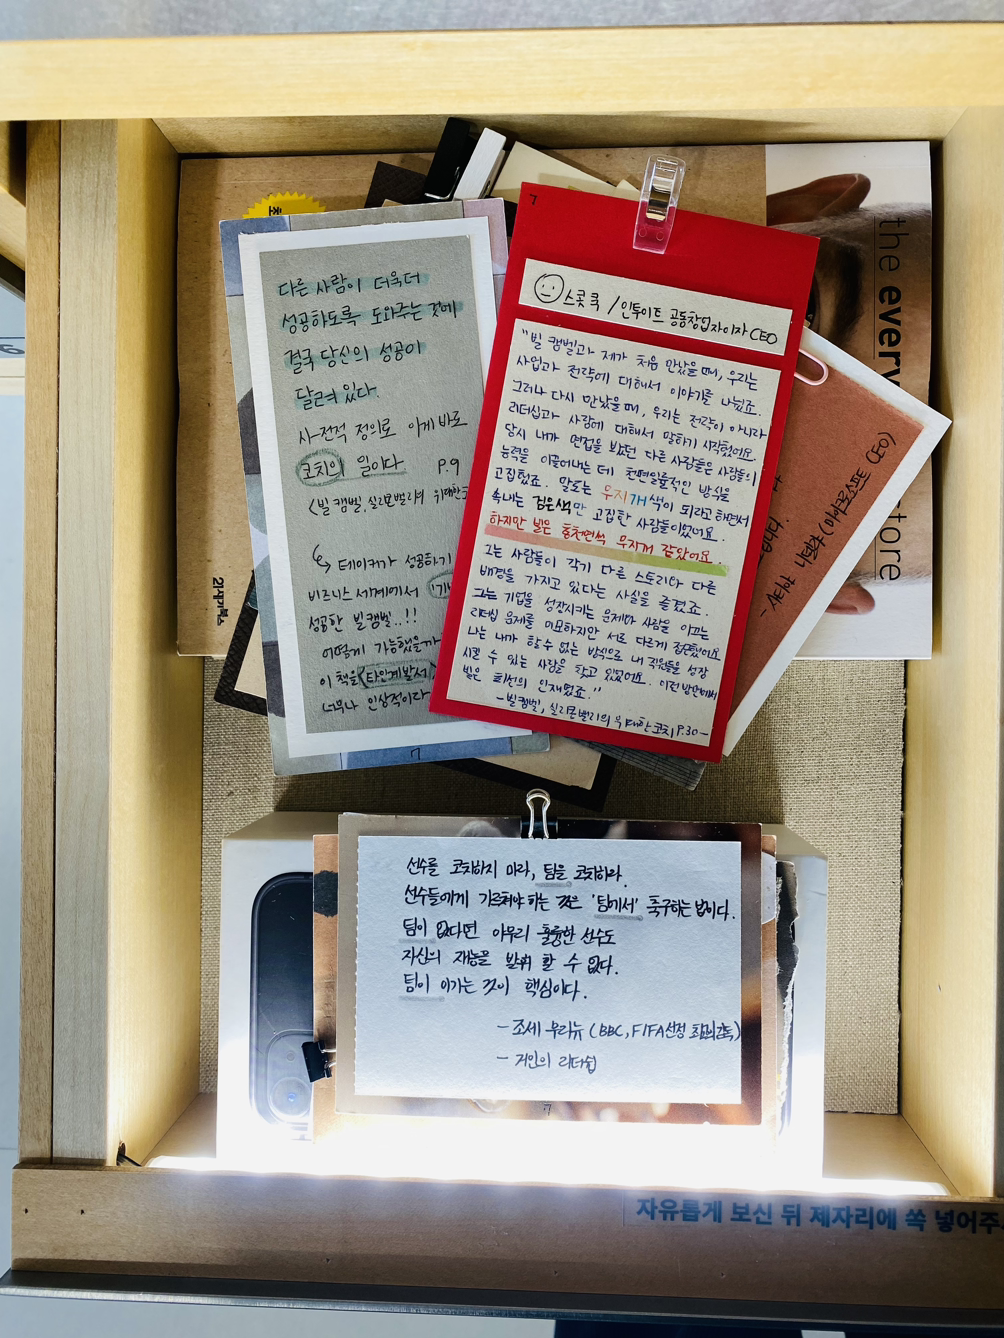 다른 사람이 더욱더
성공하도록 도와주는 것에
결국 당신의 성공이
달려 있다.
사전적 정의로 이게 바로
코치의 일이다. P.9
<빌 캠벨, 실리콘밸리의 위대한
↳ 테이커가 성공하기
비즈니스 세계에서
성공한 빌캠벨..!!
어떻게 가능했을까
이 책을 타인계발서
너무나 인상적이다
7
7
스콧 쿡 / 인투이트 공동창업자이자 CEO
"빌 캠벨과 제가 처음 만났을 때, 우리는
사업과 전략에 대해서 이야기를 나눴죠.
그러나 다시 만났을 때, 우리는 전략이 아니라
리더십과 사람에 대해서 말하기 시작했어요.
당시 내가 면접을 봤던 다른 사람들은 사람들의
능력을 이끌어내는 데 천편일률적인 방식을
고집했죠. 말로는 무지개색이 되라고 하면서
속내는 검은색만 고집한 사람들이었어요.
하지만 빌은 총천연색 무지개 같았어요.
그는 사람들이 각기 다른 스토리와 다른
배경을 가지고 있다는 사실을 즐겼죠.
그는 기업을 성장시키는 문제와 사람을 이끄는
리더십 문제를 미묘하지만 서로 다르게 접근했어요
나는 내가 할 수 없는 방식으로 내 직원들을 성장
시킬 수 있는 사람을 찾고 있었어요. 이런 방면에서
빌은 최선의 인재였죠."
-빌캠벨, 실리콘밸리의 위대한 코치 P.30-
the every
store
21세기북스
선수를 코치하지 마라, 팀을 코치하라.
선수들에게 가르쳐야 하는 것은 '팀에서' 축구하는 법이다.
팀이 없다면 아무리 훌륭한 선수도
자신의 재능을 발휘 할 수 없다.
팀이 이기는 것이 핵심이다.
- 조세 무리뉴 (BBC, FIFA선정 최고의감독)
- 거인의 리더십
7
자유롭게 보신 뒤 제자리에 쏙 넣어주